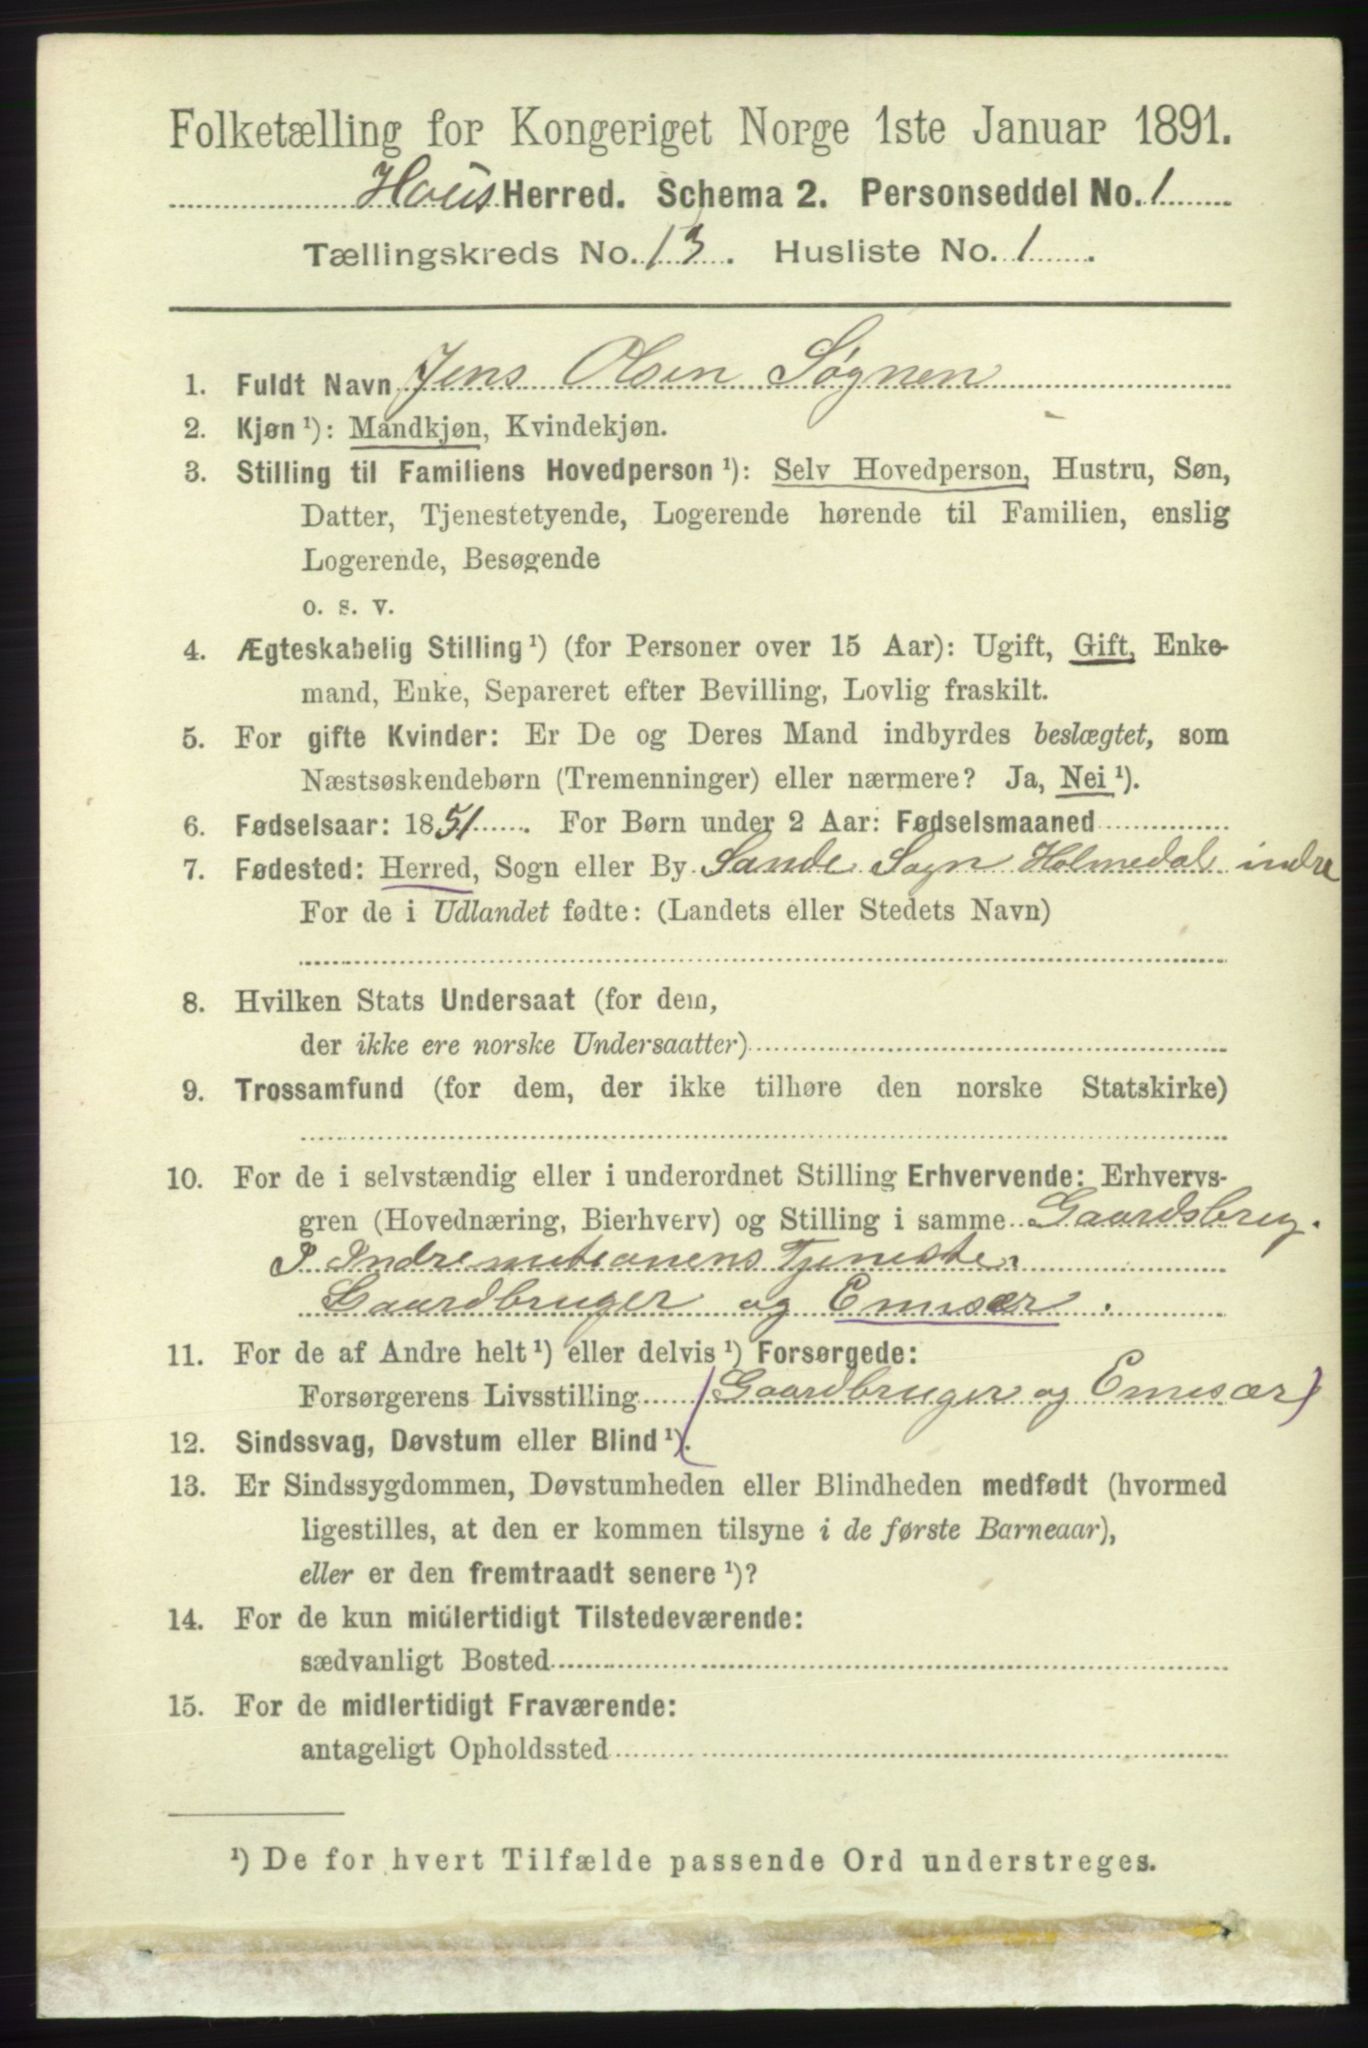 Folketælling for Kongeriget Norge 1ste Januar 1891.
Hous Herred. Schema 2. Personseddel No. 1
Tællingskreds No. 13. Husliste No. 1.
1. Fuldt Navn Jens Olsen Søgnen
2. Kjøn ¹): Mandkjøn, Kvindekjøn.
3. Stilling til Familiens Hovedperson ¹): Selv Hovedperson, Hustru, Søn,
Datter, Tjenestetyende, Logerende hørende til Familien, enslig
Logerende, Besøgende
o. s. v.
4. Ægteskabelig Stilling ¹) (for Personer over 15 Aar): Ugift, Gift, Enke-
mand, Enke, Separeret efter Bevilling, Lovlig fraskilt.
5. For gifte Kvinder: Er De og Deres Mand indbyrdes beslægtet, som
Næstsøskendebørn (Tremenninger) eller nærmere? Ja, Nei ¹).
6. Fødselsaar: 1851. For Børn under 2 Aar: Fødselsmaaned
7. Fødested: Herred, Sogn eller By Sande Sogn Holmedal indre
For de i Udlandet fødte: (Landets eller Stedets Navn)
8. Hvilken Stats Undersaat (for dem,
der ikke ere norske Undersaatter)
9. Trossamfund (for dem, der ikke tilhøre den norske Statskirke)
10. For de i selvstændig eller i underordnet Stilling Erhvervende: Erhvervs-
gren (Hovednæring, Bierhverv) og Stilling i samme Gaardsbrug.
I Indremissionens Tjeneste.
Gaardbruger og Emisær.
11. For de af Andre helt ¹) eller delvis ¹) Forsørgede:
Forsørgerens Livsstilling (Gaardbruger og Emisær)
12. Sindssvag, Døvstum eller Blind ¹).
13. Er Sindssygdommen, Døvstumheden eller Blindheden medfødt (hvormed
ligestilles, at den er kommen tilsyne i de første Barneaar),
eller er den fremtraadt senere ¹)?
14. For de kun midlertidigt Tilstedeværende:
sædvanligt Bosted
15. For de midlertidigt Fraværende:
antageligt Opholdssted
¹) De for hvert Tilfælde passende Ord understreges.